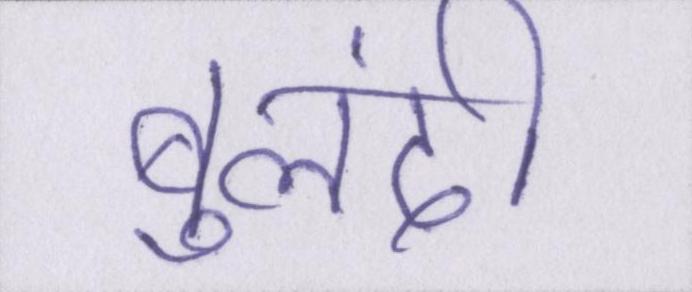 बुलंदी